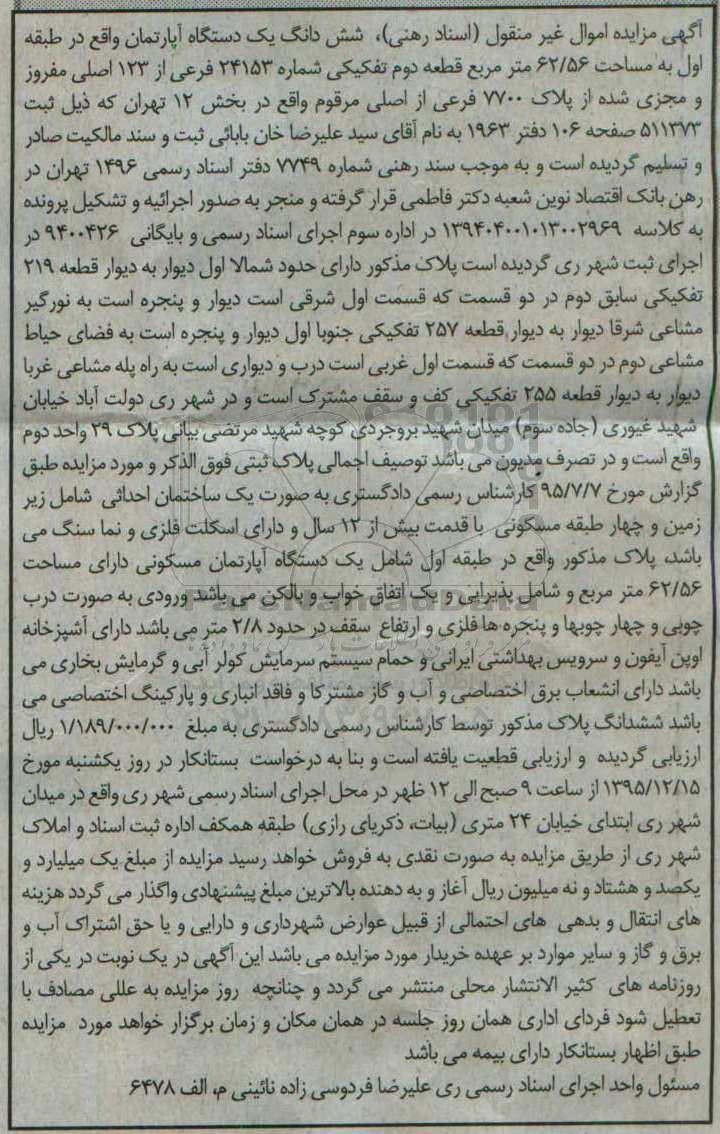 آگهی مزایده اموال غیر منقول (اسناد رهنی)، شش دانگ یک دستگاه آپارتمان واقع در طبقه
اول به مساحت ۶۲/۵۶ متر مربع قطعه دوم تفکیکی شماره ۲۴۱۵۳ فرعی از ۱۲۳ اصلی مفروز
و مجزی شده از پلاک ۷۷۰۰ فرعی از اصلی مرقوم واقع در بخش ۱۲ تهران که ذیل ثبت
۵۱۱۳۷۳ صفحه ۱۰۶ دفتر ۱۹۶۳ به نام آقای سید علیرضا خان بابائی ثبت و سند مالکیت صادر
و تسلیم گردیده است و به موجب سند رهنی شماره ۷۷۴۹ دفتر اسناد رسمی ۱۴۹۶ تهران در
رهن بانک اقتصاد نوین شعبه دکتر فاطمی قرار گرفته و منجر به صدور اجرائیه و تشکیل پرونده
به کلاسه ۱۳۹۴۰۴۰۰۱۰۱۳۰۰۲۹۶۹ در اداره سوم اجرای اسناد رسمی و بایگانی ۹۴۰۰۴۲۶ در
اجرای ثبت شهر ری گردیده است پلاک مذکور دارای حدود شمالا اول دیوار به دیوار قطعه ۲۱۹
تفکیکی سابق دوم در دو قسمت که قسمت اول شرقی است دیوار و پنجره است به نورگیر
مشاعی شرقا دیوار به دیوار قطعه ۲۵۷ تفکیکی جنوبا اول دیوار و پنجره است به فضای حیاط
مشاعی دوم در دو قسمت که قسمت اول غربی است درب و دیواری است به راه پله مشاعی غربا
دیوار به دیوار قطعه ۲۵۵ تفکیکی کف و سقف مشترک است و در شهر ری دولت آباد خیابان
شهید غیوری (جاده سوم) میدان شهید بروجردی کوچه شهید مرتضی بیانی پلاک ۲۹ واحد دوم
واقع است و در تصرف مدیون می باشد توصیف اجمالی پلاک ثبتی فوق الذکر و مورد مزایده طبق
گزارش مورخ ۹۵/۷/۷ کارشناس رسمی دادگستری به صورت یک ساختمان احداثی شامل زیر
زمین و چهار طبقه مسکونی با قدمت بیش از ۱۲ سال و دارای اسکلت فلزی و نما سنگ می
باشد، پلاک مذکور واقع در طبقه اول شامل یک دستگاه آپارتمان مسکونی دارای مساحت
۶۲/۵۶ متر مربع و شامل پذیرایی و یک اتفاق خواب و بالکن می باشد ورودی به صورت درب
چوبی و چهار چوبها و پنجره ها فلزی و ارتفاع سقف در حدود ۲/۸ متر می باشد دارای آشپزخانه
اوپن آیفون و سرویس بهداشتی ایرانی و حمام سیستم سرمایش کولر آبی و گرمایش بخاری می
باشد دارای انشعاب برق اختصاصی و آب و گاز مشترکا و فاقد انباری و پارکینگ اختصاصی می
باشد ششدانگ پلاک مذکور توسط کارشناس رسمی دادگستری به مبلغ ۱/۱۸۹/۰۰۰/۰۰۰ ریال
ارزیابی گردیده و ارزیابی قطعیت یافته است و بنا به درخواست بستانکار در روز یکشنبه مورخ
۱۳۹۵/۱۲/۱۵ از ساعت ۹ صبح الی ۱۲ ظهر در محل اجرای اسناد رسمی شهر ری واقع در میدان
شهر ری ابتدای خیابان ۲۴ متری (بیات، ذکریای رازی) طبقه همکف اداره ثبت اسناد و املاک
شهر ری از طریق مزایده به صورت نقدی به فروش خواهد رسید مزایده از مبلغ یک میلیارد و
یکصد و هشتاد و نه میلیون ریال آغاز و به دهنده بالاترین مبلغ پیشنهادی واگذار می گردد هزینه
های انتقال و بدهی های احتمالی از قبیل عوارض شهرداری و دارایی و یا حق اشتراک آب و
برق و گاز و سایر موارد بر عهده خریدار مورد مزایده می باشد این آگهی در یک نوبت در یکی از
روزنامه های کثیر الانتشار محلی منتشر می گردد و چنانچه روز مزایده به عللی مصادف با
تعطیل شود فردای اداری همان روز جلسه در همان مکان و زمان برگزار خواهد مورد مزایده
طبق اظهار بستانکار دارای بیمه می باشد
مسئول واحد اجرای اسناد رسمی ری علیرضا فردوسی زاده نائینی م، الف ۶۴۷۸